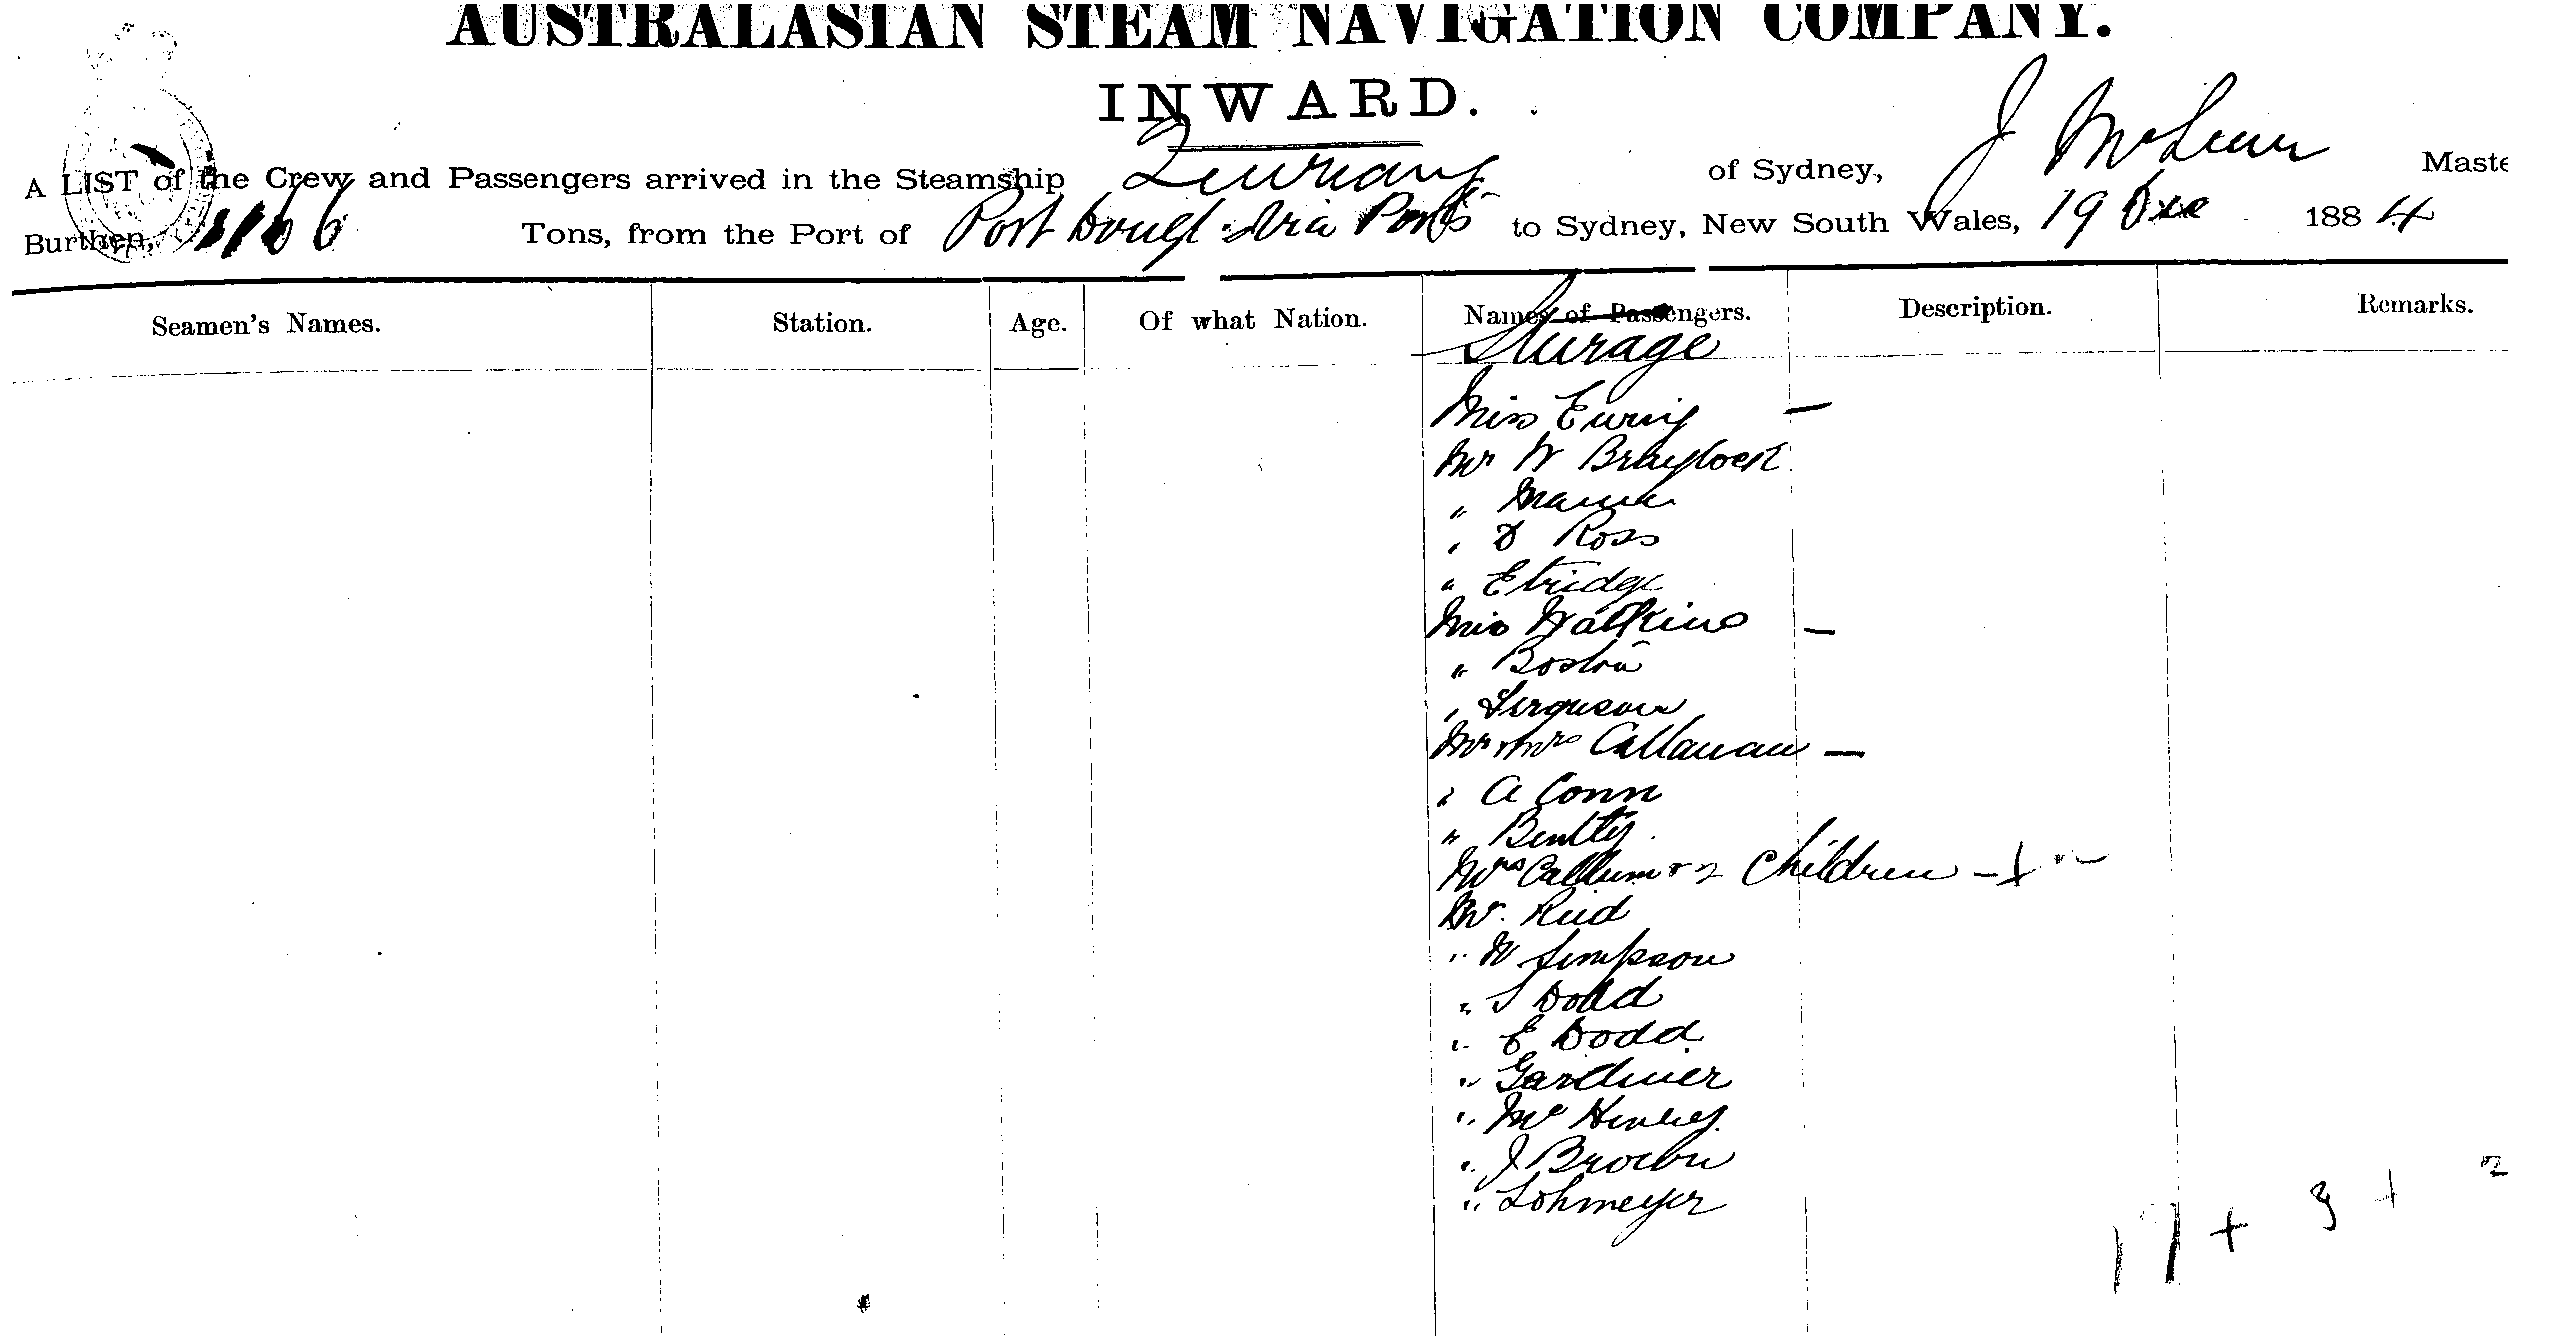 AUSTRALASIAN STEAM NAVIGATION COMPANY.
INWARD.
A LIST of the Crew and Passengers arrived in the Steamship of Sydney, J Master
Burthen, 1166 Tons, from the Port of Port Dougl via Ports to Sydney, New South Wales, 19 Dec 1884
Seamen's Names. Station. Age. Of what Nation. Names of Passengers. Description. Remarks.
Sturage
Miss Ewing —
Mr W Braylock
" 
, D Ross
" Etridge
Miss Watkins —
" Boston
, Ferguson
Mr & Mrs Callanan —
, A Conn
" Bentley
Mrs Callum & 2 Children
Mr. Reid
" W Simpson
" S Dodd
" E Dodd
" Gardiner
" Mc
" J Brown
" Lohmeyer
17 + 3 + 2